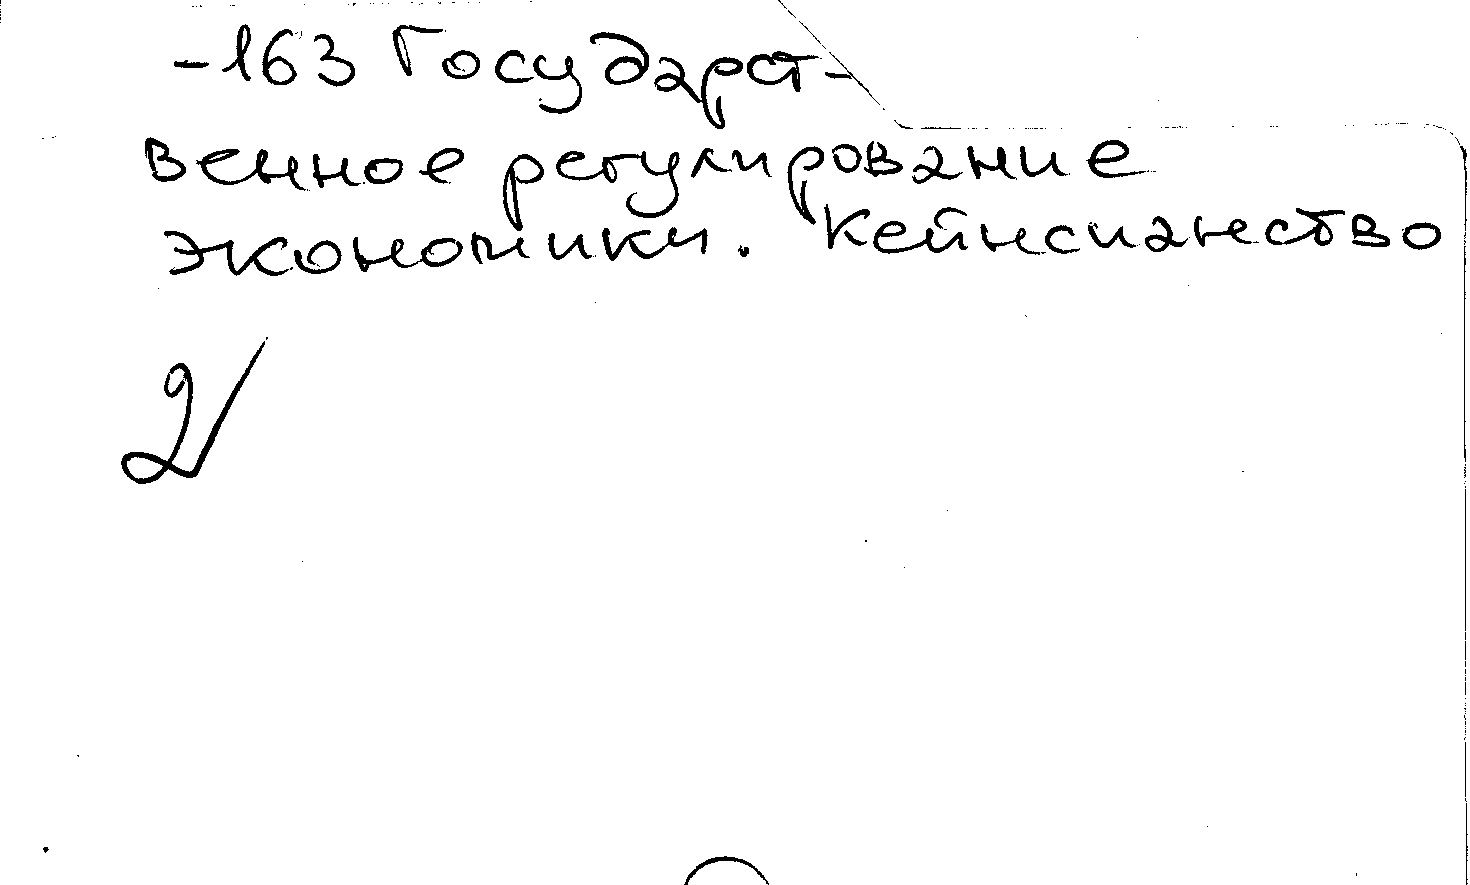 -163 Государст-
венное регулирование
экономики. Кейнсианство
2